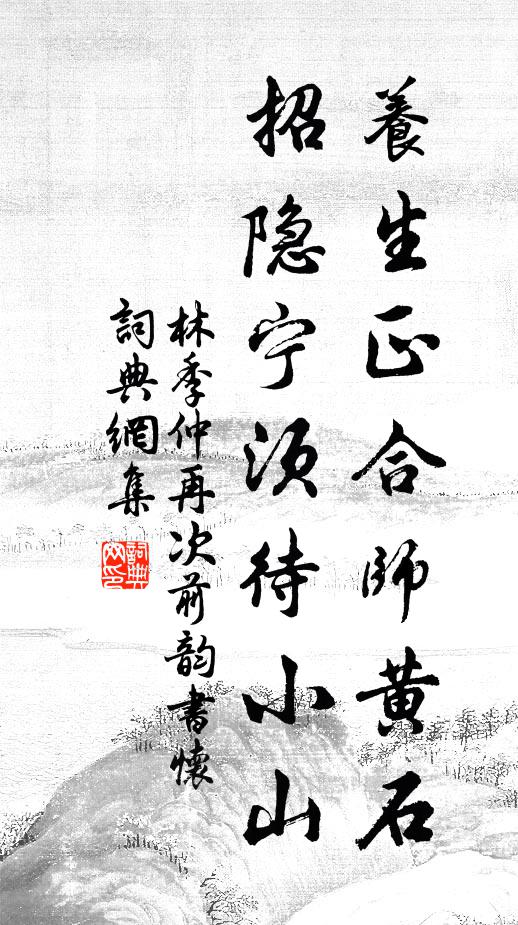 養生正合師黄石
招隐宁須待小山
林季仲再次前韵書懷
詞典網集
詞典網印